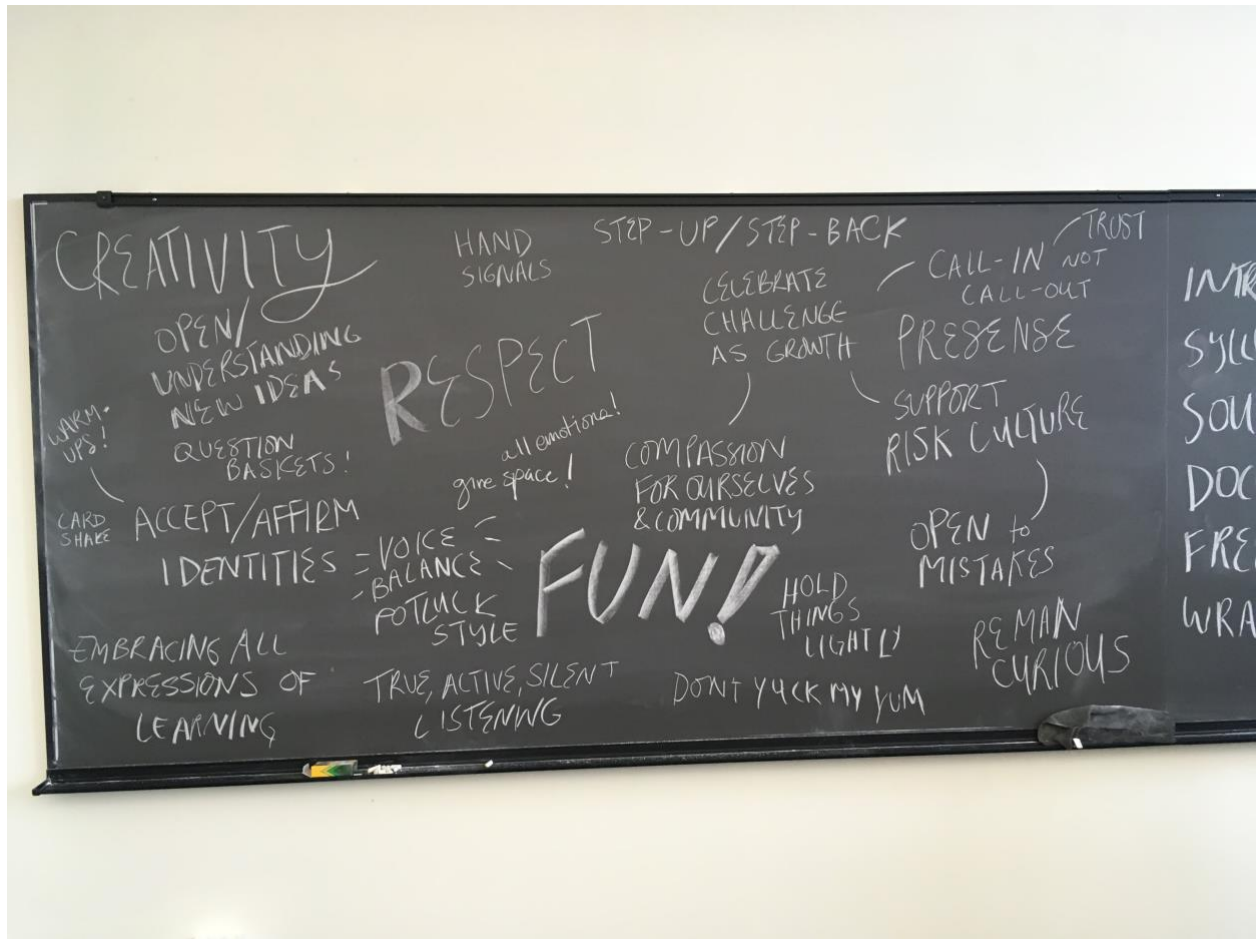 CREATIVITY
OPEN/
UNDERSTANDING
NEW IDEAS
WARM-
UPS!
QUESTION
BASKETS!
CARD
SHAKE
ACCEPT/AFFIRM
IDENTITIES
EMBRACING ALL
EXPRESSIONS OF
LEARNING
HAND
SIGNALS
RESPECT
all emotions!
give space!
VOICE
BALANCE
POTLUCK
STYLE
TRUE, ACTIVE, SILENT
LISTENING
STEP-UP/STEP-BACK
CELEBRATE
CHALLENGE
AS GROWTH
COMPASSION
FOR OURSELVES
& COMMUNITY
FUN!
HOLD
THINGS
LIGHTLY
DONT YUCK MY YUM
TRUST
CALL-IN NOT
CALL-OUT
PRESENSE
SUPPORT
RISK CULTURE
OPEN to
MISTAKES
REMAN
CURIOUS
INTR
SYLL
SOU
DOC
FRE
WRA